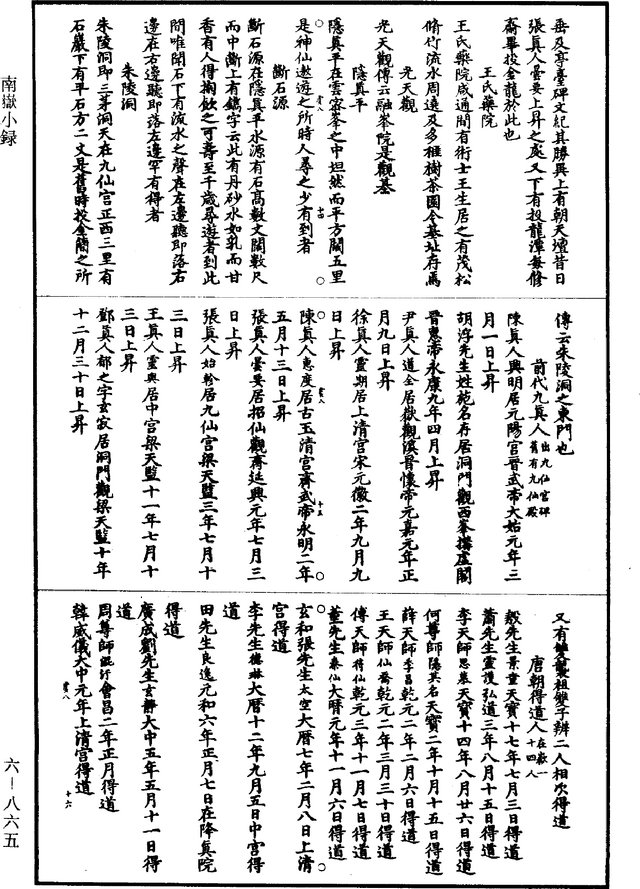 垂及亭臺碑文紀其勝異上有朝天壇昔日
張真人曇要上昇之處又下有投龍潭每修
齋畢投金龍於此也
王氏藥院
王氏藥院咸通間有術士王生居之有茂松
脩竹流水周遶及多榧樹茶園今基址存焉
光天觀
光天觀傳云融峯院是觀基
隱真平
隱真平在雲密峯之中坦然而平方闊五里
是神仙遨遊之所時人尋之少有到者
斷石源
斷石源在隱真平水源有石高數丈闊數尺
而中斷上有鐫字云此有丹砂水如乳而甘
香有人得掬飲之可壽至千歲尋遊者到此
問唯聞石下有流水之聲在左邊聽即落右
邊在右邊聽即落左邊罕有得者
朱陵洞
朱陵洞即三茅洞天在九仙宮正西三里有
石巖下有平石方二丈是舊時投金簡之所
傳云朱陵洞之東門也
前代九真人 出九仙宮碑 舊有九仙殿
陳真人興明居元陽宮晉武帝大始元年三
月一日上昇
胡浮先生姓施名存居洞門觀西峯搆虛閣
晉惠帝永康九年四月上昇
尹真人道全居嶽觀漢晉懷帝元嘉元年正
月九日上昇
徐真人靈期居上清宮宋元徽二年九月九
日上昇
陳真人惠度居古玉清宮齊武帝永明二年
五月十三日上昇
張真人曇要居招仙觀齊延興元年七月三
日上昇
張真人始珍居九仙宮梁天監三年七月十
三日上昇
王真人靈輿居中宮梁天監十一年七月十
三日上昇
鄧真人郁之字玄寂居洞門觀梁天監十年
十二月三十日上昇
又有雙襲祖雙子辨二人相次得道
唐朝得道人 在嶽一 十四人
殷先生景童天寶十七年七月三日得道
蕭先生靈護弘道三年八月十五日得道
李天師思慕天寶十四年八月廿六日得道
何尊師隱其名天寶二年十月十五日得道
薛天師季昌乾元二年二月六日得道
王天師仙喬乾元二年三月三十日得道
傅天師待仙乾元三年十一月七日得道
董先生奉仙大曆元年十一月六日得道
玄和張先生太空大曆七年二月八日上清
宮得道
李先生德琳大曆十二年九月五日中宮得
道
田先生良逸元和六年正月七日在降真院
得道
廣成劉先生玄靜大中五年五月十一日得
道
周尊師混汙會昌二年正月得道
韓威儀大中元年上清宮得道
南嶽小録
六－八六五